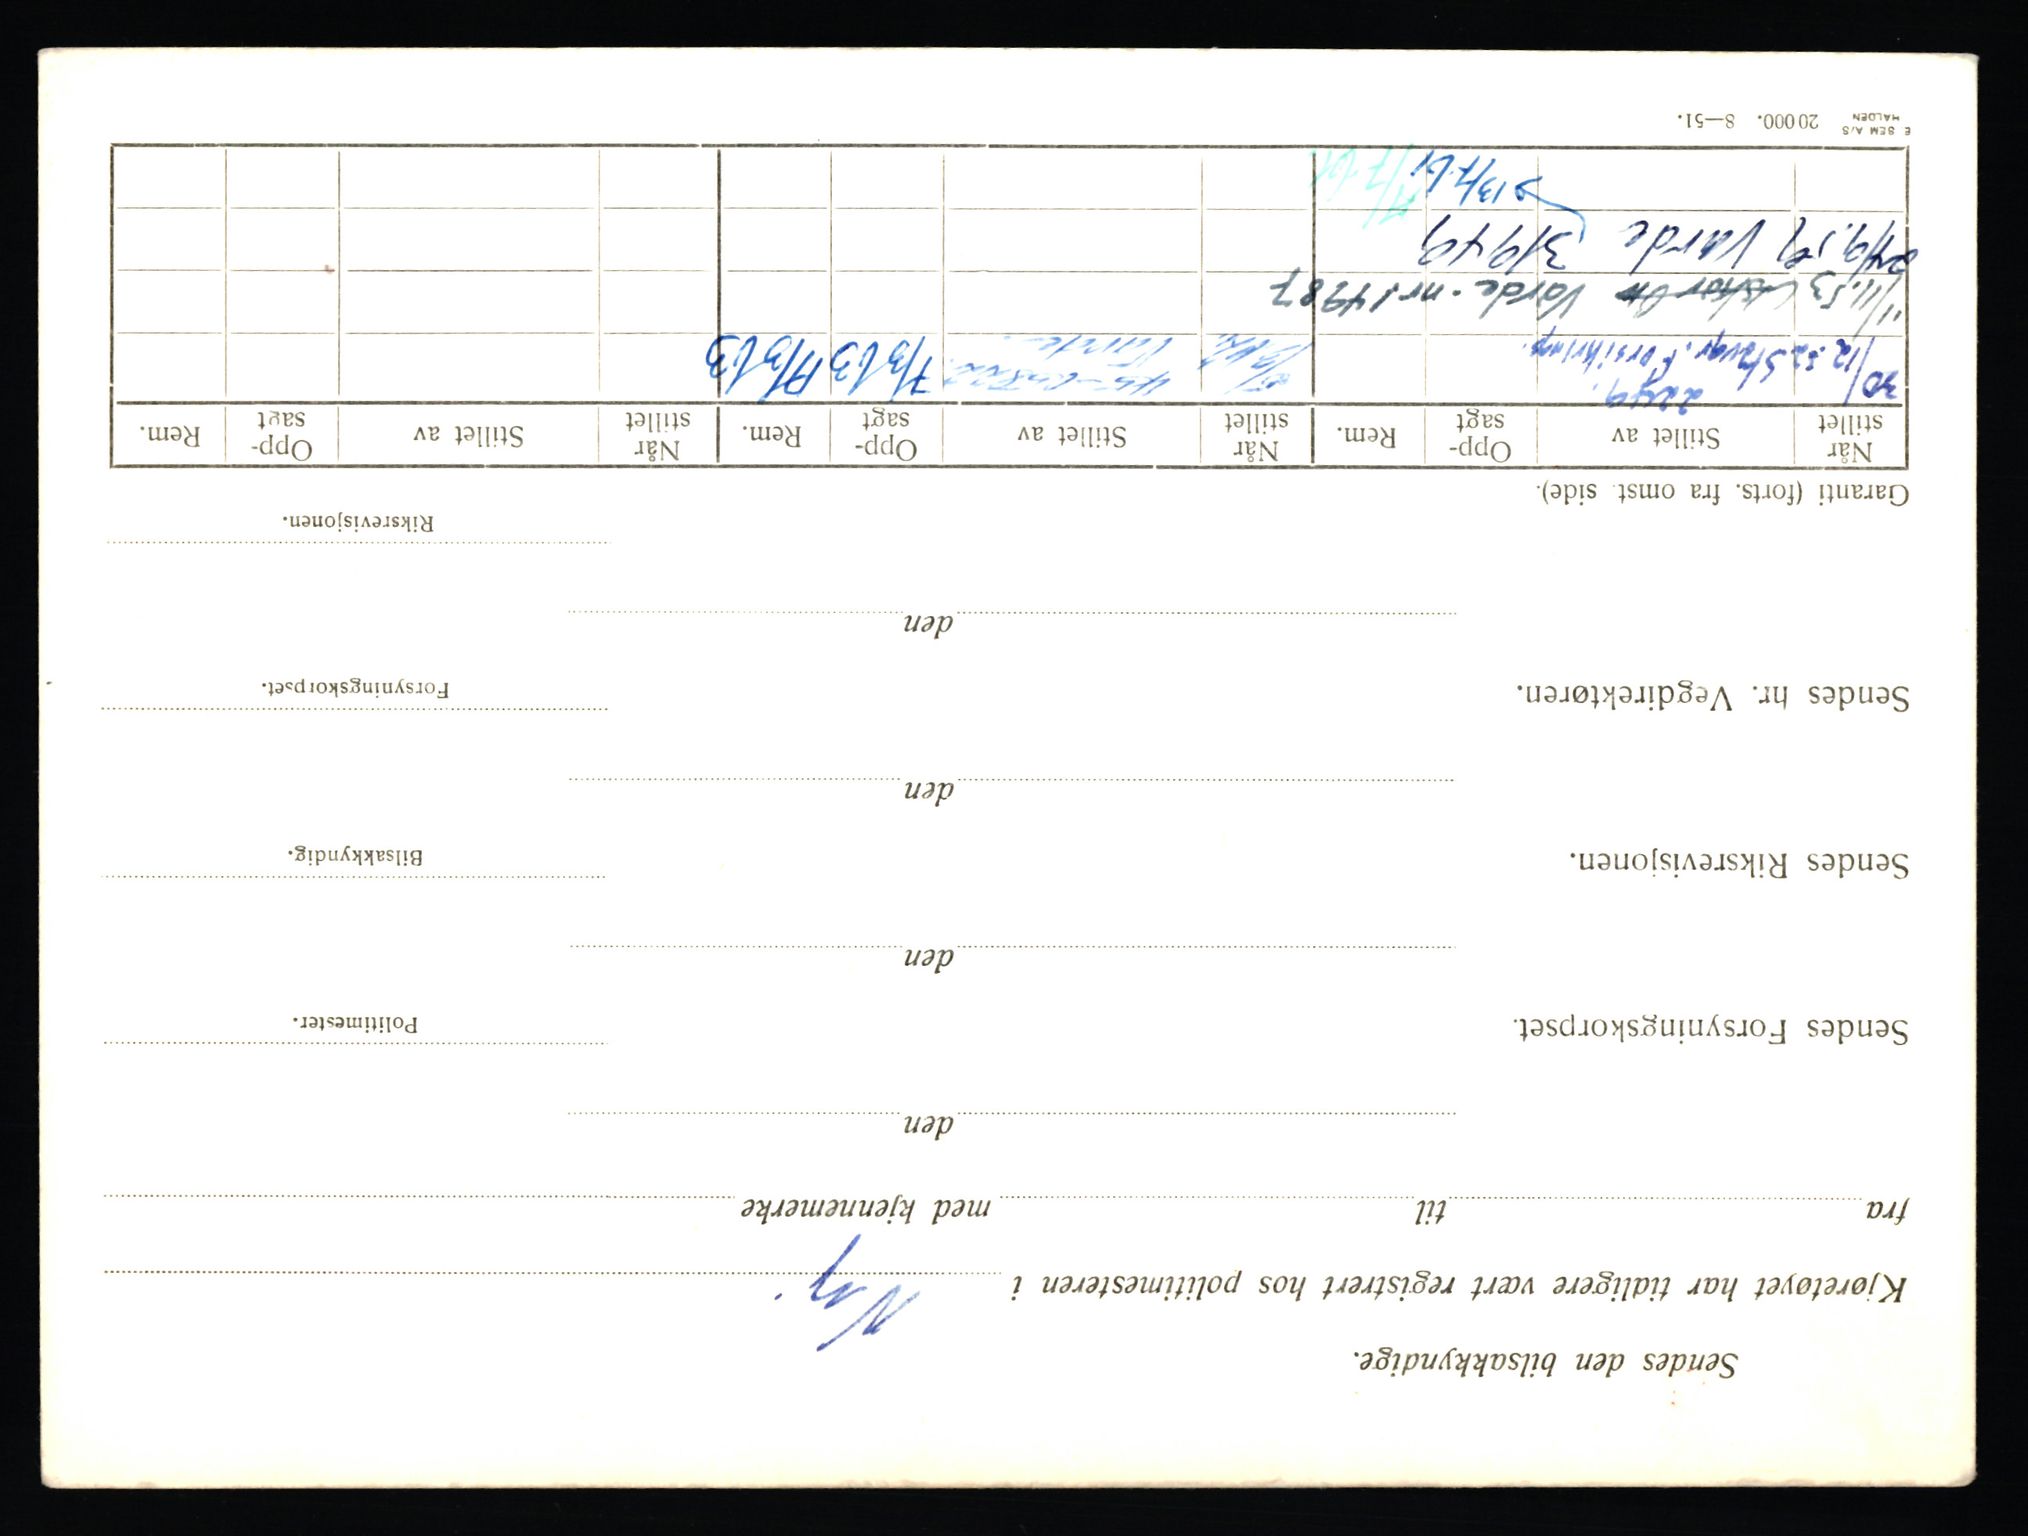 Sendes den bilsakkyndige.
Kjøretøyet har tidligere vært registrert hos politimesteren i Ny.
fra til med kjennemerke
den
Politimester.
Sendes Forsyningskorpset.
den
Bilsakkyndig.
Sendes Riksrevisjonen.
den
Forsyningskorpset.
Sendes hr. Vegdirektøren.
den
Riksrevisjonen.
Garanti (forts. fra omst. side).
Når stillet Stillet av Opp- sagt Rem. Når stillet Stillet av Opp- sagt Rem. Når stillet Stillet av Opp- sagt Rem.
2249.
30/12.52 Stavgr. Forsikring. Varde. 7/3 63 19/3 63
11/11.53 Varde. nr. 14987
24/9.59 Varde 31949
13/7.61 17/7.61
E SEM A/S HALDEN 20 000. 8—51.